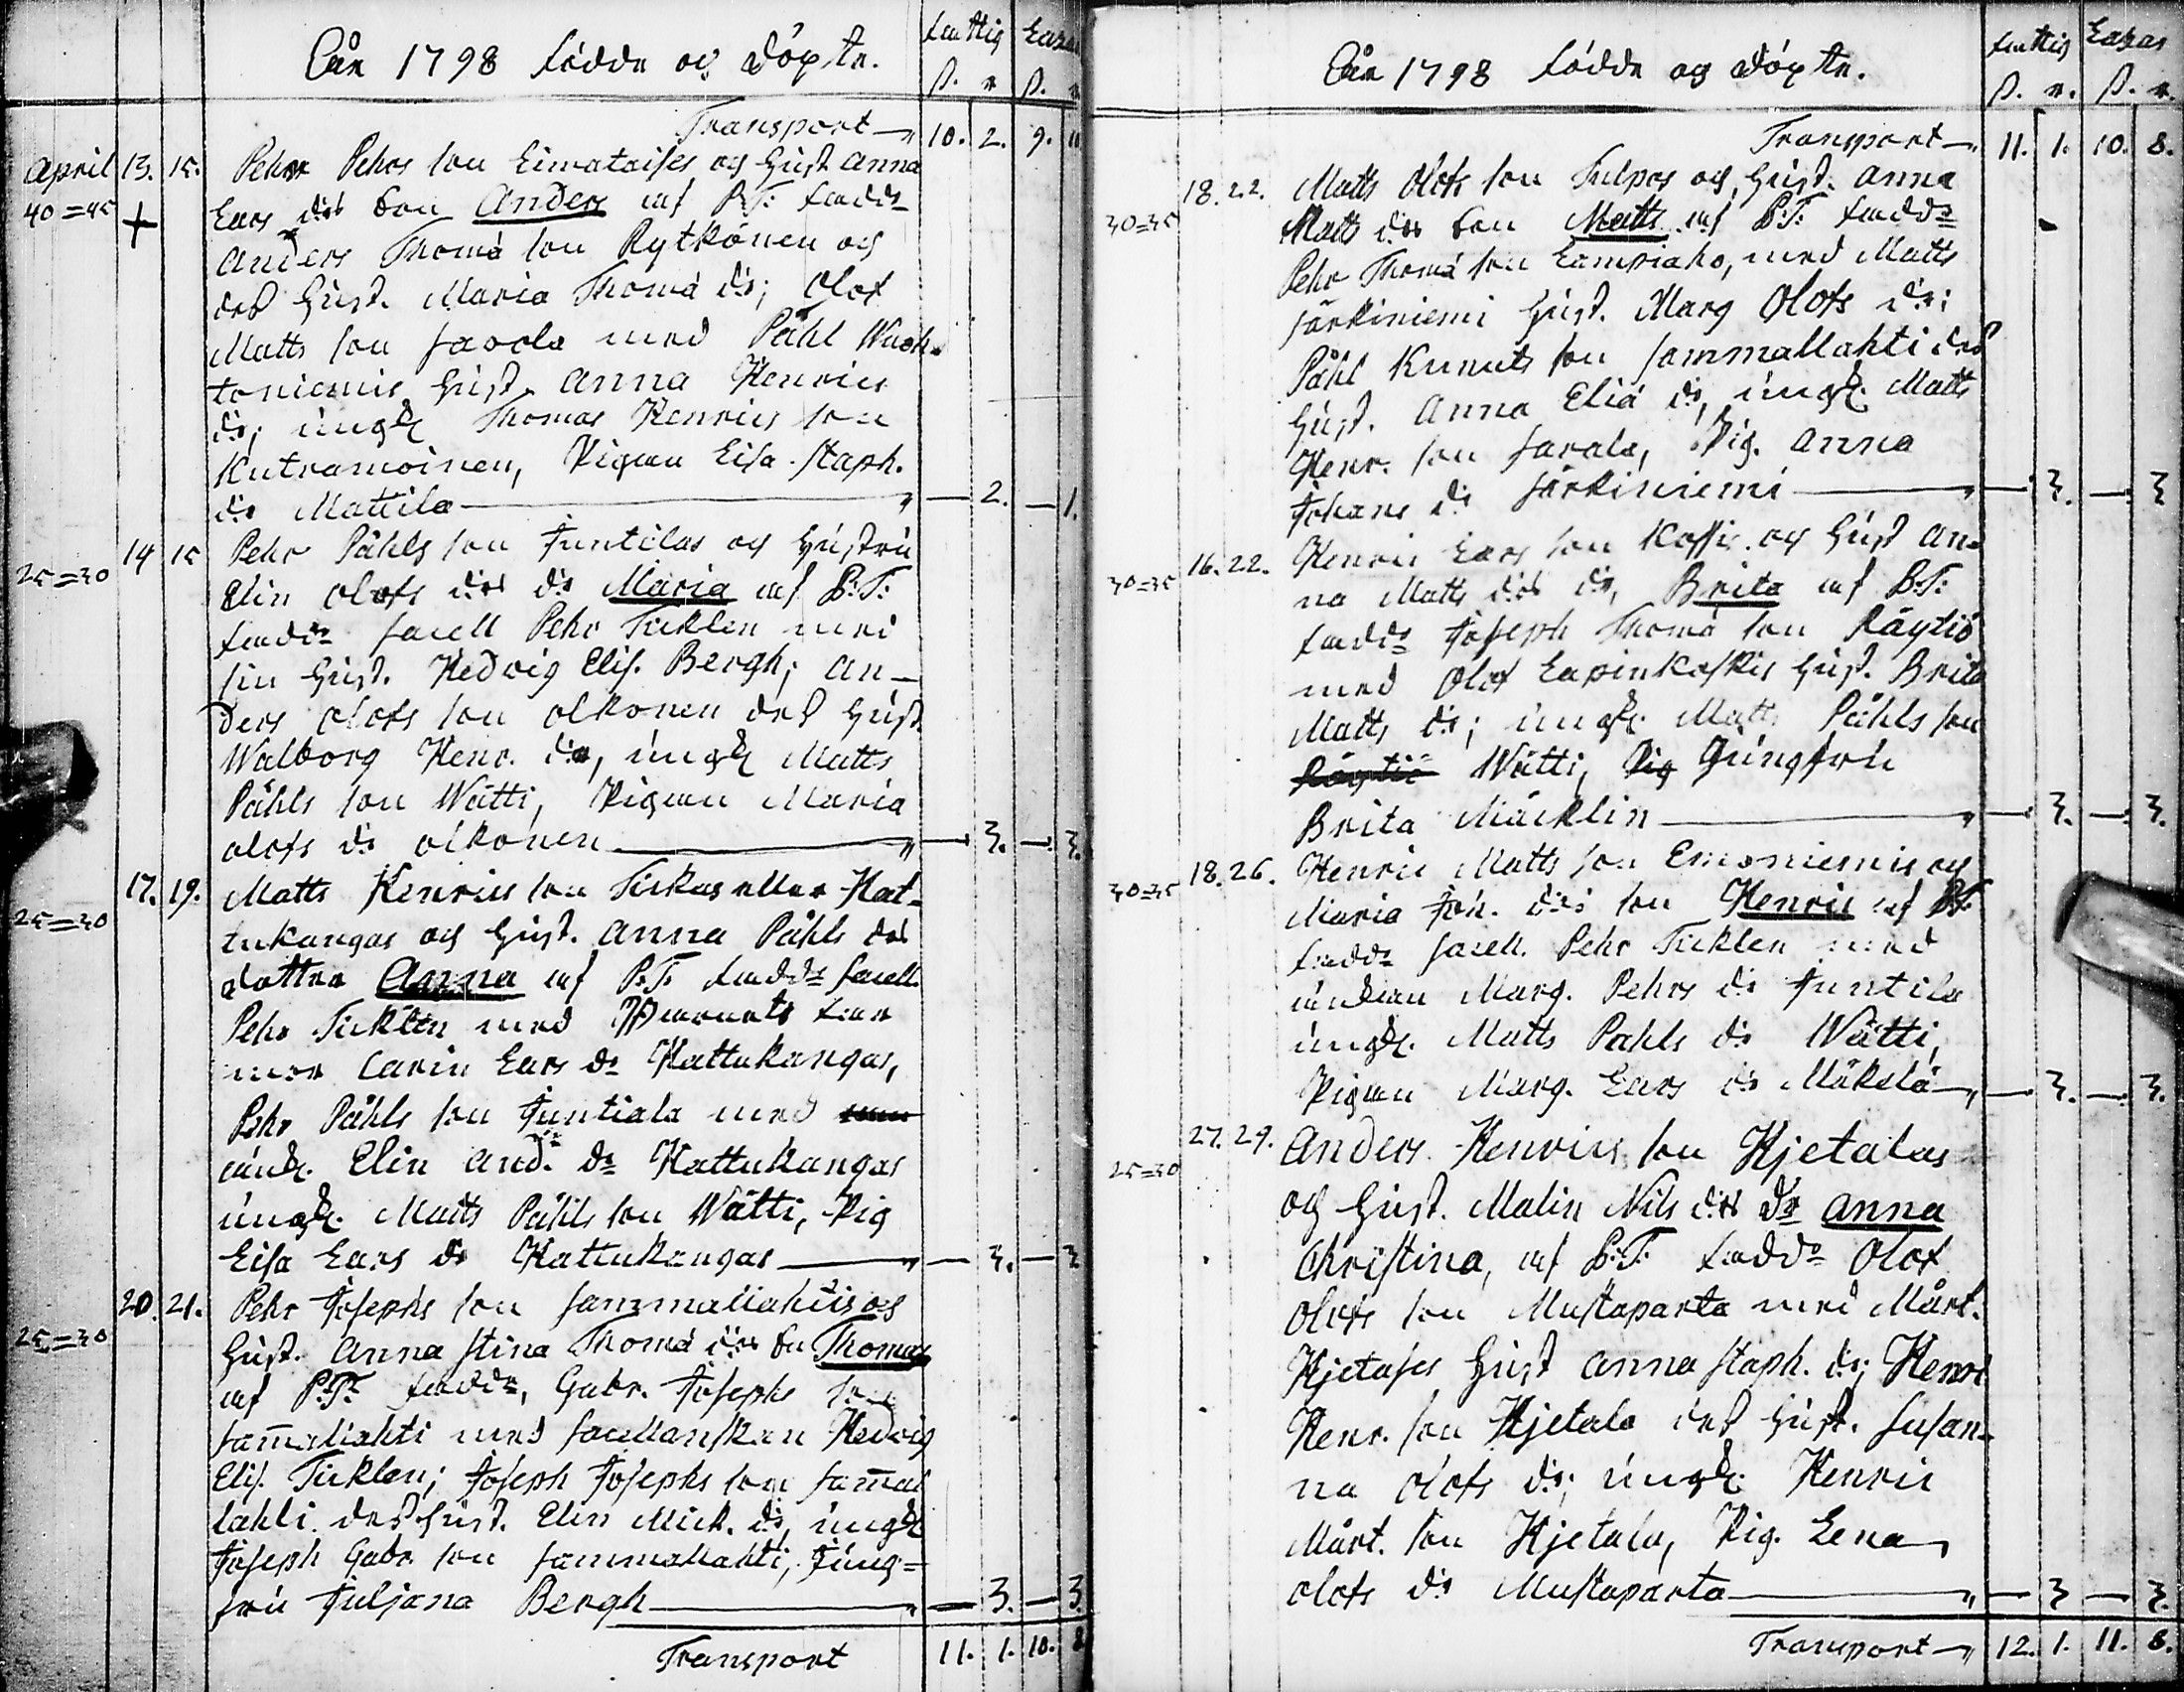 Åår 1798 födde och döpte.
Fattig Lazar
ß. r. ß. r.
Transport 10. 2. 9. 11
April 13. 15. Pehr Pehrs son Limataises och Hust Anna
40=45 Lars drs son Anders af B:T: Fadd:
Anders Thomæ son Rytkönen och
des Hust. Maria Thomæ dr; Olof
Matts son Savola med Påhl Wuoh-
toniemis Hust. Anna Henrics
dr; ungk Thomas Henrics son
Kutramoinen, Pigan Lisa Staph.
dr Mattila 2. 1.
14 15 Pehr Påhls son Juntilas och Hustru
25=30 Elin Olofs drs dr Maria af B:T:
Fadd: Sacell Pehr Ticklen med
sin Hust. Hedvig Elis. Bergh; An-
ders Olofs son Olkonen des Hust.
Walborg Henr. dr, ungk Matts
Påhls son Wätti, Pigan Maria
Olofs dr Olkonen 3. 3.
17. 19. Matts Henrics son Tickas eller Hat-
25=30 tukangas och Hust. Anna Påhls drs
dotter Anna af B:T: Fadd: Sacell.
Pehr Ticklen med
mor Carin Lars dr Hattukangas,
Pehr Påhls son Juntiala med
änk. Elin And. dr Hattukangas
ungk. Matts Påhls son Wätti, Pig
Lisa Lars dr Hattukangas 3. 3
20. 21. Pehr Josephs son Sammaliahtis och
25=30 Hust. Anna Stina Thomæ drs son Thomas
af B:T: Fadd:, Gabr. Josephs son
Sam̄aliahti med Sacellanskan Hedvig
Elis. Ticklen; Joseph Josephs son Sam̄al
lahti des Hust. Elin Mick. dr, ungk
Joseph Gabr. son Sammallahti, Jung-
fru Juljana Bergh 3. 3.
Transport 11. 1. 10. 8
Åår 1798 födde och döpte.
Fattig Lazar
ß. r. ß. r.
Transport 11. 1. 10. 8.
18. 22. Matts Olofs son Tulpos och Hust. Anna
30=35 Matts drs son Matts af B:T: Fadd:
Pehr Thomæ son Lampiaho, med Matts
Särkiniemi Hust. Marg Olofs dr;
Påhl Knuuts son Sammallahti des
Hust. Anna Eliæ dr, ungk. Matts
Henr. son Savala, Pig. Anna
Johans dr Särkiniemi 3. 3
16. 22. Henric Lars son Kossis och Hust An-
30=35 na Matts drs dr, Brita af B:T:
Fadd: Joseph Thomæ son Räytiö
med Olof Lapinkaskis Hust. Brita
Matts dr; ungk. Matts Påhls son
Räytiö Wätti, Pig Jungfru
Brita Mäcklin 3. 3.
18. 26. Henric Matts son Emoniemis och
30=35 Maria Joh. drs son Henric af B:T:
Fadd: Sacell. Pehr Ticklen med
änkan Marg. Pehrs dr Juntila
ungk. Matts Pahls dr Wätti,
Pigan Marg. Lars dr Mäkelä 3. 3.
27. 29. Anders Henrics son Hjetalas
25=30 och Hust. Malin Nils drs dr Anna
Christina, af B:T: Fadd: Olof
Olofs son Mustaparta med Mårt.
Hjetases Hust Anna Staph. dr; Henr
Henr. son Hjetala des Hust. Susan-
na Olofs dr; ungk. Henric
Mårt. son Hjetala, Pig. Lena
Olofs dr Mustaparta 3 3.
Transport 12. 1. 11. 8.